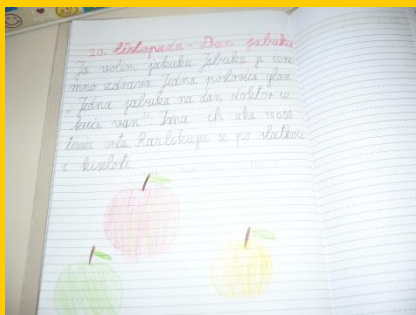 20. listopada - Dan jabuka
Ja volim jabuku. Jabuka je
mno zdrava. Jedna poslovica glasi
"Jedna jabuka na dan doktor iz
kuće van". Ima ih oko
vrsta. Razlikuju se po slatkoći
i kiselosti.